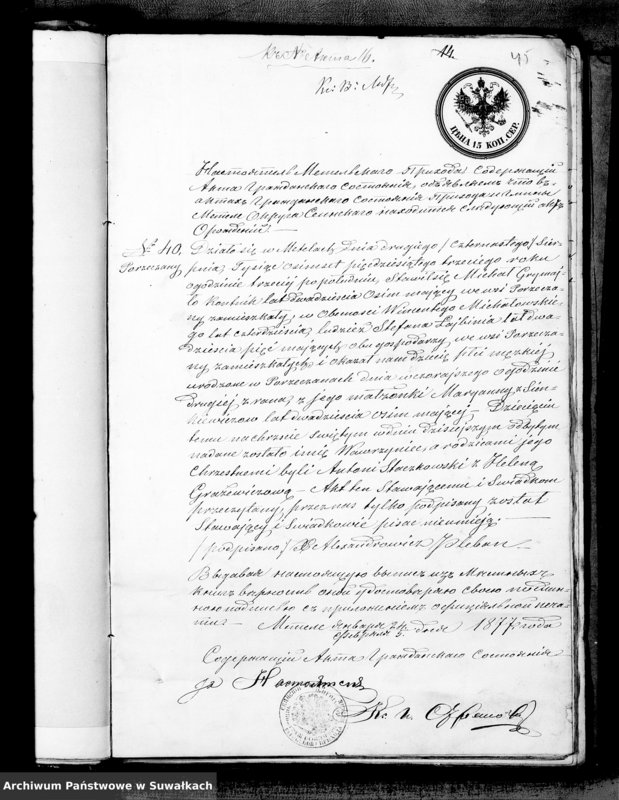 Къ № Акта 16.
14.
45
ЦѢНА 15 КОП. СЕР.
Настоятель Метельскаго Прихода Содержащій
Акта Гражданскаго Состоянія, объявляемъ что въ
актахъ Гражданскаго Состоянія Прихода и Гмины
Метеле Округа Сейнскаго находится Слѣдующій актъ
О рожденіи:
№ 40. Działo się w Metelach dnia drugiego / czternastego / Sier-
Porzeczany pnia, Tysiąc ośmset pięćdziesiątego trzeciego roku
o godzinie trzeciej po południu, Stawił się Michał Grymaj-
ło Kontnik lat dwadzieścia Ośm mający we wsi Porzecza-
ny zamieszkały, w Obecności Wincentego Michałowskie-
go lat czterdzieścia, tudzież Stefana Łajbinia lat dwa-
dzieścia pięć mających obu gospodarzy, we wsi Porzecza-
ny zamieszkałych i okazał nam dziecię płci męzkiej
urodzone w Porzeczanach dnia wczorajszego o godzinie
drugiej z rana, z jego małżonki Maryanny z Sien-
kiewiczow lat dwadzieścia ośm mającej – Dziecięciu
temu na chrznie Świętym w dniu dzisiejszym odbytym
nadane zostało imię Wawrzyniec, a rodzicami jego
chrzestnemi byli Antoni Staczkowski z Heleną
Grażewiczową – Akt ten Stawającemu i Świadkom
przeczytany, przez nas tylko podpisany został
Stawający i Świadkowie pisać nieumieją: –
/podpisano/ X. Alexandrowicz Pleban
Выдавая настоящую выпись изъ Метельныхъ
книгъ вѣрность оной удостовѣряю своею подпис-
ною подписью съ приложеніемъ официальной печа-
ти: – Метеле Января 24 / Февраля 5 дня 1877 года
Содержащій Акта Гражданскаго Состоянія
за Настоятеля
Кс. И.
Archiwum Państwowe w Suwałkach